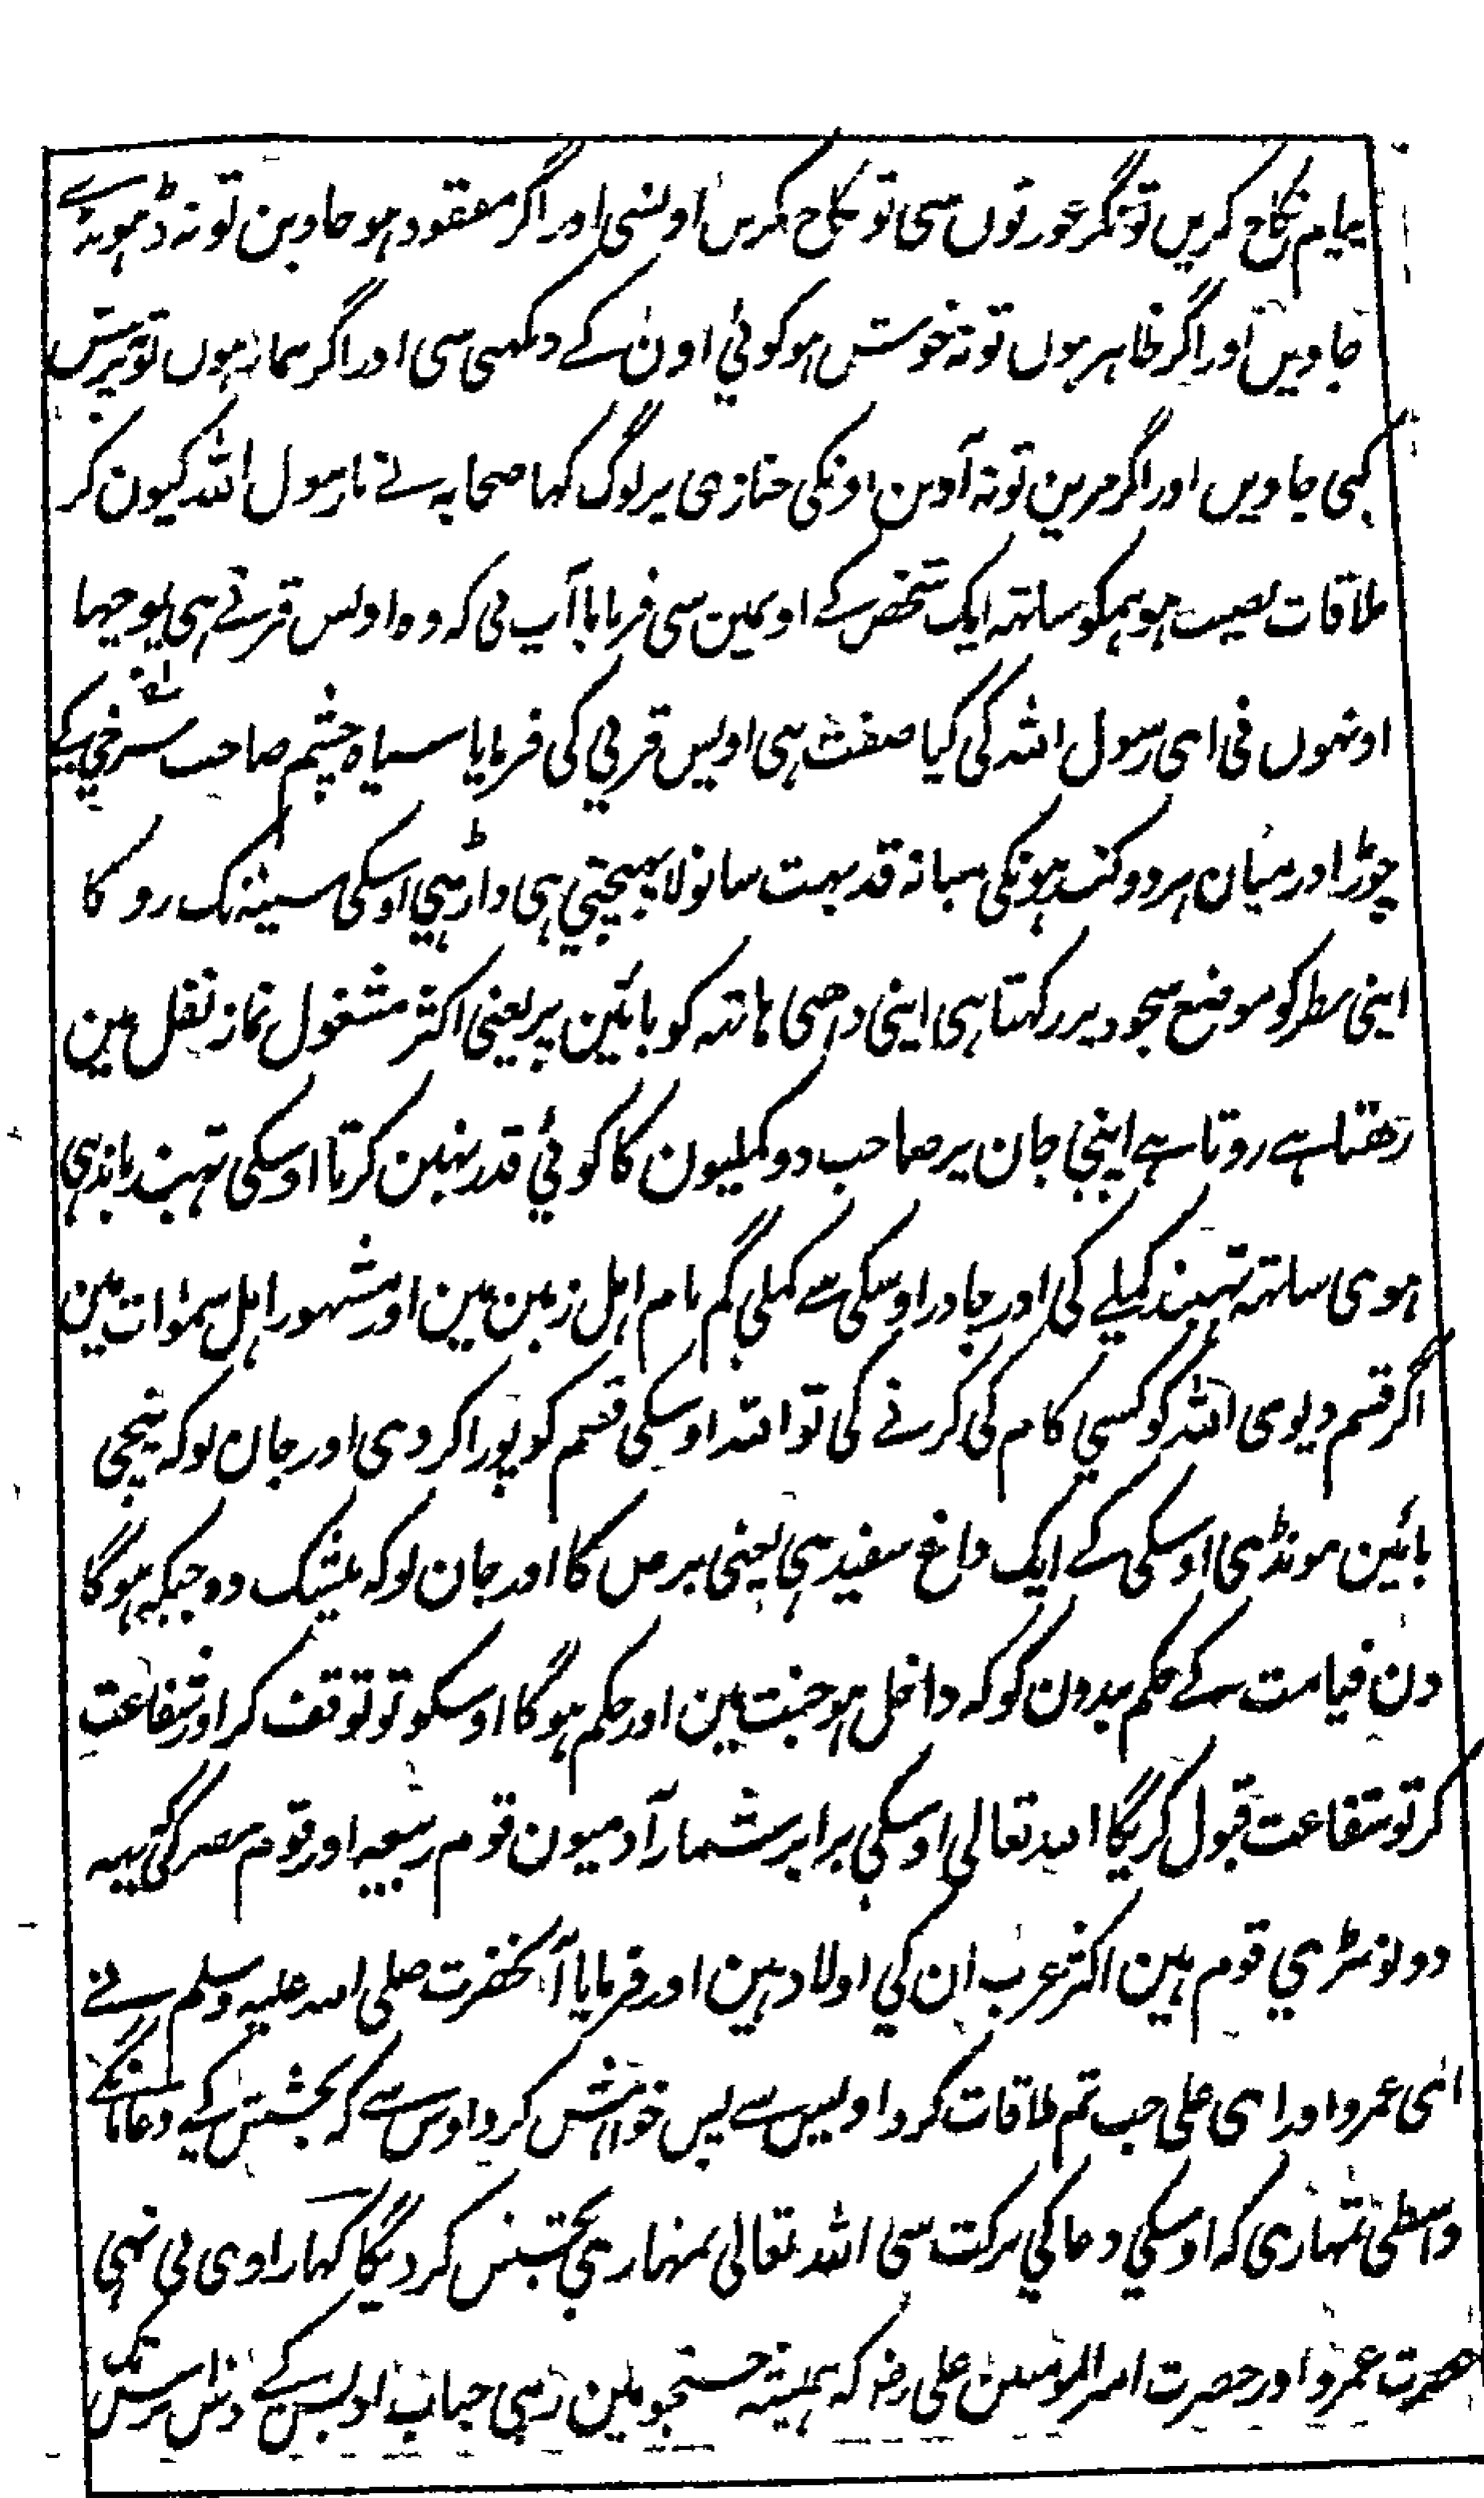 پیام نکاح کریں تونگر عورتوں سی تو نکاح نکریں اونسی اور اگر مفقود ہو جاوین تو نہ ڈہونڈے
جاویں اور اگر ظاہر ہوں تو نہ خوش ہو کوئی اون کے دیکھی سی اور اگر بیمار ہوں تو نہ پرسش
کی جاویں اور اگر مرین تو نہ آوین اونکی جنازی پر لوگ کہا صحابہ نے یا رسول اللہ کیون کر
ملاقات نصیب ہو ہمکو ساتہ ایک شخص کے اونمین سی فرمایا آپ نی کہ وہ اویس قرنے ہی پوچہا
اونہوں نی ای رسول اللہ کی کیا صفت ہی اویس قرنی کی فرمایا سیاہ چشم صاحب سرخی کے
چوڑا درمیان ہر دو کتف ہونگی میانہ قد بہت سانولا پہیجتی ہی داڑہی اوسکی سینہ تک روکا
اپنی نظر کو موضع سجود پر رکہتا ہی اپنی داہی ہاتہ کو بائین پر یعنی اکثر مشغول نماز نفل مین
رہتا ہے روتا ہے اپنی جان پر صاحب دو کملیون کا کوئی قدر نہین کرتا اوسکی تہبند باندہی
ہوی ساتہ تہبند کملے کی اور چادر اوسکی سے کملی گم نام اہل زمین مین اور مشہور اہل سموات مین
اگر قسم دیوی اللہ کو کسی کام کی کرنے کی تو اللہ اوسکی قسم کو پورا کر دی اور جان لو کہ نیچی
بائین مونڈی اوسکی کے ایک داغ سفید ہی یعنی برص کا اور جان لو کہ بیشک وہ جبکہ ہوگا
دن قیامت کے حکم بندون کو کہ داخل ہو جنت مین اور حکم ہوگا اوسکو تو توقف کر اور شفاعت
کر تو شفاعت قبول کریگا اللہ تعالی اوسکی برابر شمار آدمیون قوم ربیعہ اور قوم مضر کی یہہ
دو لو بڑی قوم ہین اکثر عرب ان کی اولاد ہین اور فرمایا آنحضرت صلی اللہ علیہ وسلم نے
ائی عمر و اور ای علی جب تم ملاقات کرو اویس سے پس خواہش کرو اوس سے کہ بخشش کے دعا مانگے
واسطی تمہاری کہ اوسکی دعا کی برکت سی اللہ تعالی تمہاری بخشش کر دیگا کہا راوی نی نہی
حضرت عمرو اور حضرت امیر المومنین علی رضہ کہ ہمیشہ جستجو مین رہی جناب اویس کے دس برس تک